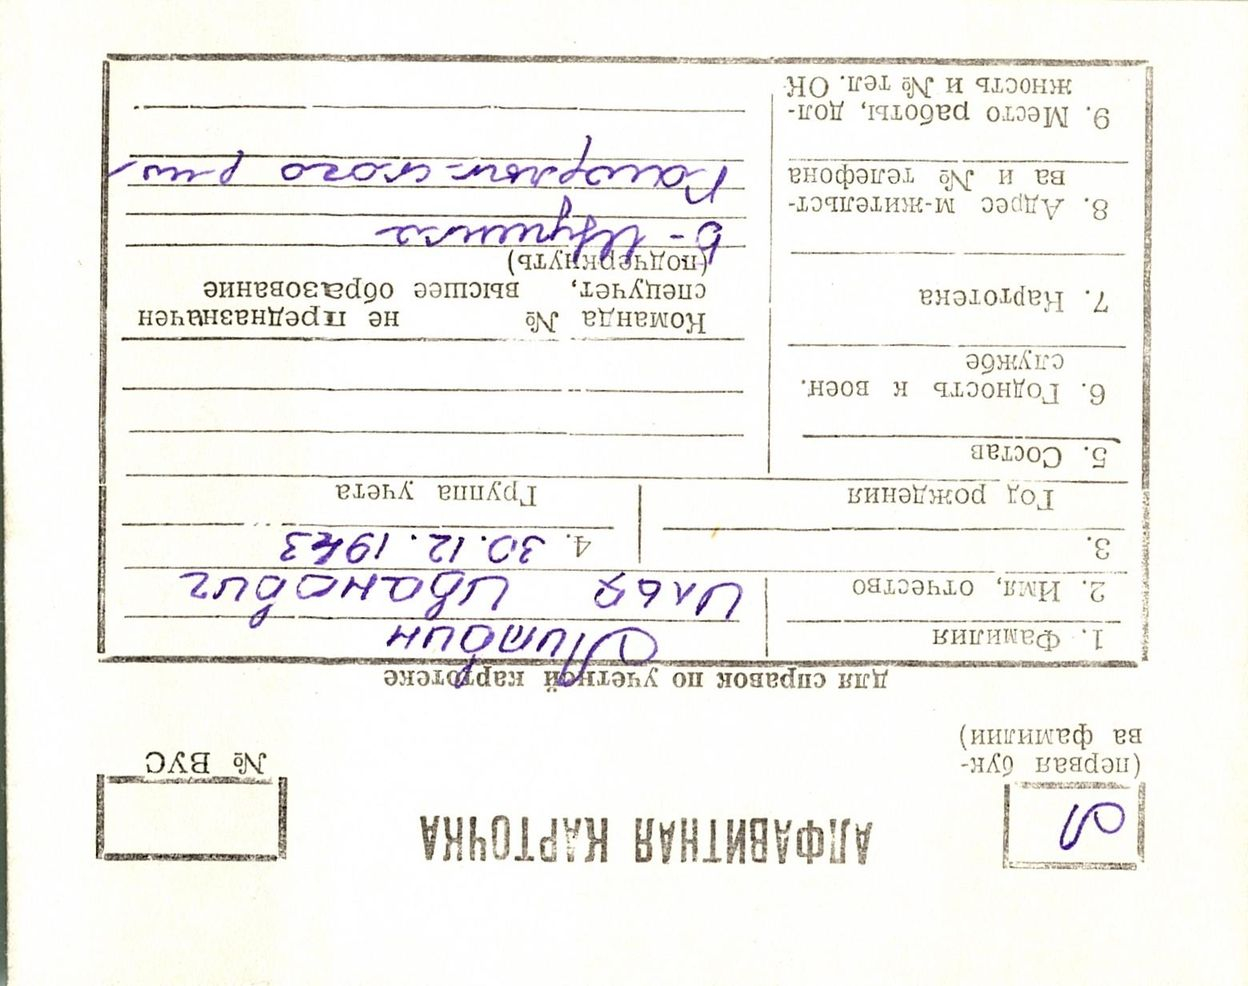 АЛФАВИТНАЯ КАРТОЧКА
Л
(первая бук-
ва фамилии)
№ ВУС
для справок по учетной картотеке
1. Фамилия Литвин
2. Имя, отчество Илья Иванович
3.
Год рождения
4. 30.12.1943
Группа учета
5. Состав
6. Годность к воен.
службе
7. Картотека
Команда № не предназначен
спецучет, высшее образование
(подчеркнуть)
8. Адрес м-жительст-
ва и № телефона
р-на
9. Место работы, дол-
жность и № тел. ОК